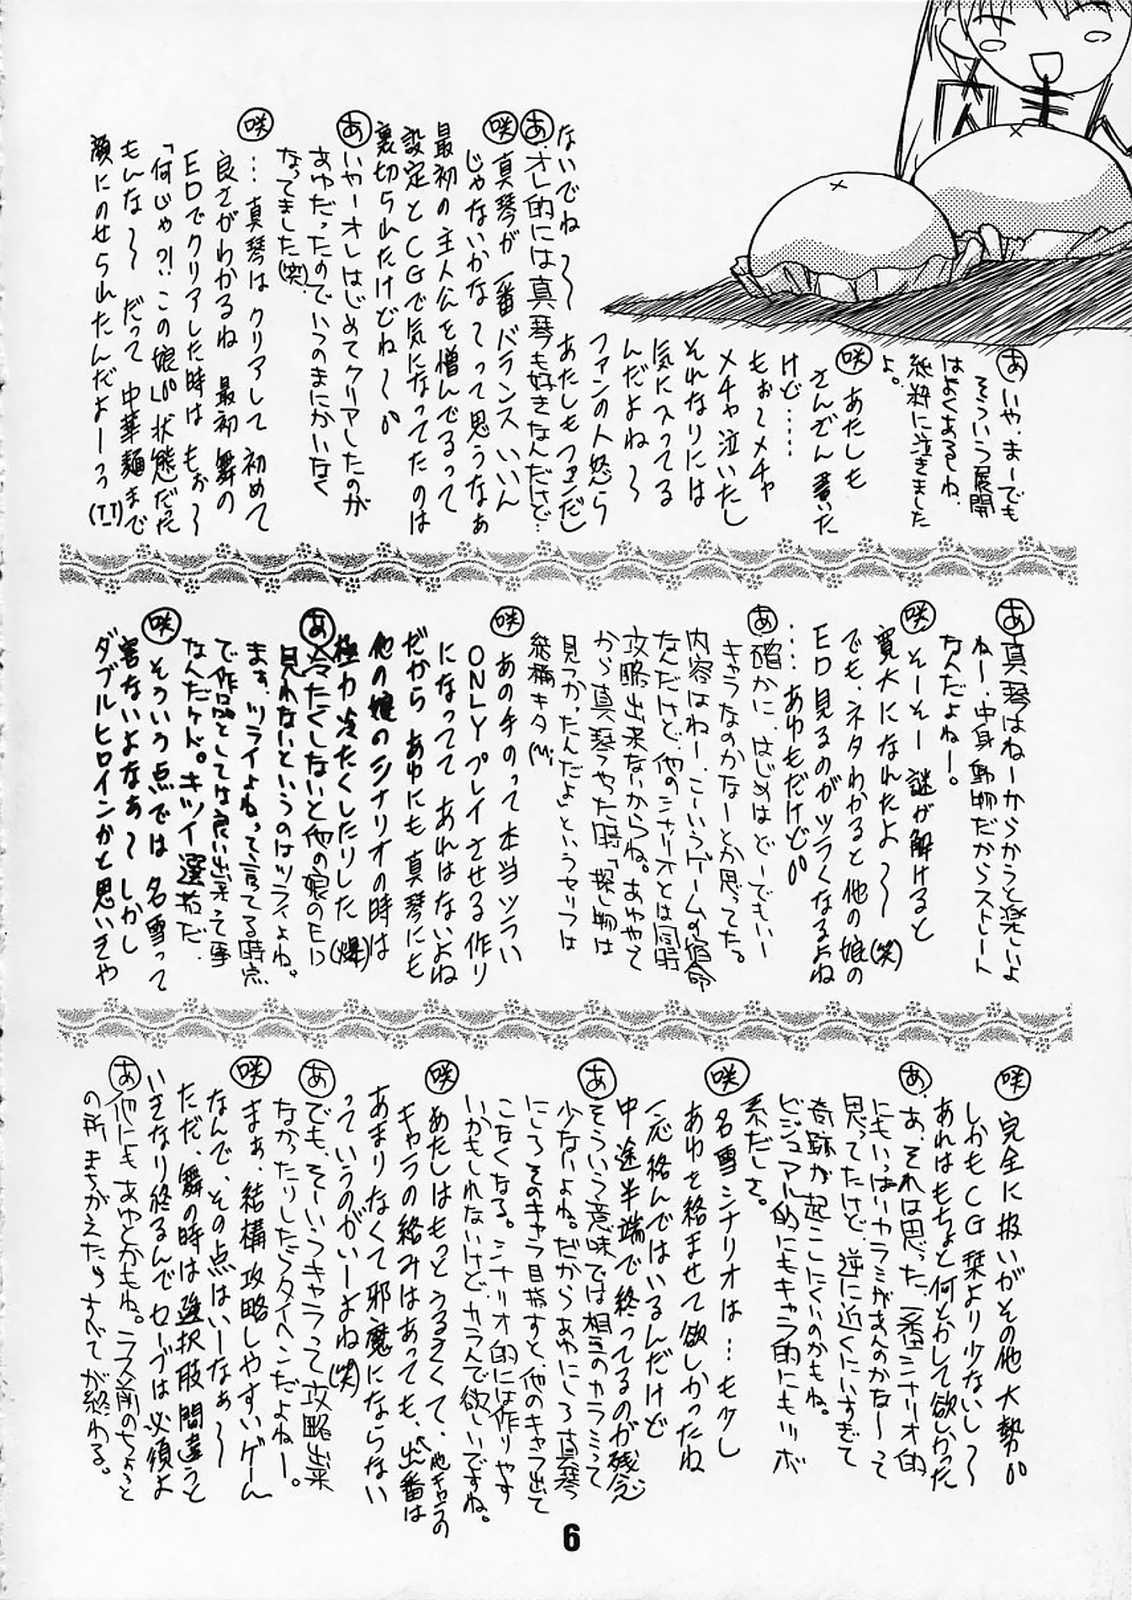 あ いや、まーでも
そういう展開
はよくあるしね、
純粋に泣きました
よ。
咲 あたしも
さんざん書いた
けど……
もぉ〜メチャ
メチャ泣いたし
それなりには
気に入ってる
んだよね〜
ファンの人怒ら
ないでね〜〜 あたしもファンだし
あ オレ的には真琴も好きなんだけど…
咲 真琴が一番バランスいいん
じゃないかなってって思うなぁ
最初の主人公を憎んでるって
設定とCGで気になってたのは
裏切られたけどね〜
あ いやーオレはじめてクリアしたのが
あゆだったのでいつのまにかいなく
なってました(笑)
咲 …真琴はクリアして初めて
良さがわかるね 最初舞の
EDでクリアした時はもぉ〜
「何じゃ?!この娘」状態だった
もんな〜〜 だって中華麺まで
顔にのせられたんだよーっっ
(TT)
あ 真琴はねーからかうと楽しいよ
ねー、中身動物だからストレート
なんだよねー。
咲 そーそー 謎が解けると
寛大になれたよ〜〜(笑)
でも、ネタわかると他の娘の
ED見るのがツラくなるよね
……あゆもだけど
あ 確かに、はじめはどーでもいー
キャラなのかなーとか思ってた。
内容はねー、こーいうゲームの宿命
なんだけど、他のシナリオとは同時
攻略出来ないからね。あゆやって
から真琴やった時「探し物は
見つかったんだよ」というセリフは
結構キタ
咲 あの手のって本当ツライ
ONLYプレイさせる作り
になってて あれはないよね
だから あゆにも真琴にも
他の娘のシナリオの時は
極力冷たくしたりした(爆)
あ 冷たくしないと他の娘のED
見れないというのはツライよね。
まぁ、ツライよねって言ってる時点
で作品としては良い出来って事
なんだケド。キツイ選択だ。
咲 そういう点では名雪って
害ないよなぁ〜 しかし
ダブルヒロインかと思いきや
咲 完全に扱いがその他大勢
しかもCG栞より少ないし〜
あれはもちょと何とかして欲しかった
あ あ、それは思った、一番シナリオ的
にもいっぱいカラミがあんのかなーって
思ってたけど、逆に近くにいすぎて
奇跡が起こりにくいのかもね。
ビジュアル的にもキャラ的にもツボ
系だしさ。
咲 名雪シナリオは…も少し
あゆを絡ませて欲しかったね
一応絡んではいるんだけど
中途半端で終ってるのが残念
あ そういう意味では相互のカラミって
少ないよね。だからあゆにしろ真琴
にしろそのキャラ目指すと、他のキャラ出て
こなくなる。シナリオ的には作りやす
いかもしれないけど、カラんで欲しいですね。
咲 あたしはもっとうるさくて、他キャラの
キャラの絡みはあっても、出番は
あまりなくて邪魔にならない
っていうのがいーよね(笑)
あ でも、そーいうキャラって攻略出来
なかったりしたらタイヘンだよねー。
咲 まぁ、結構攻略しやすいゲーム
なんで、その点はいーなぁ〜
ただ、舞の時は選択肢間違うと
いきなり終るんでセーブは必須よ
あ 他にもあゆとかもね。ラス前のちょっと
の所 まちがえたらすべてが終わる。
6